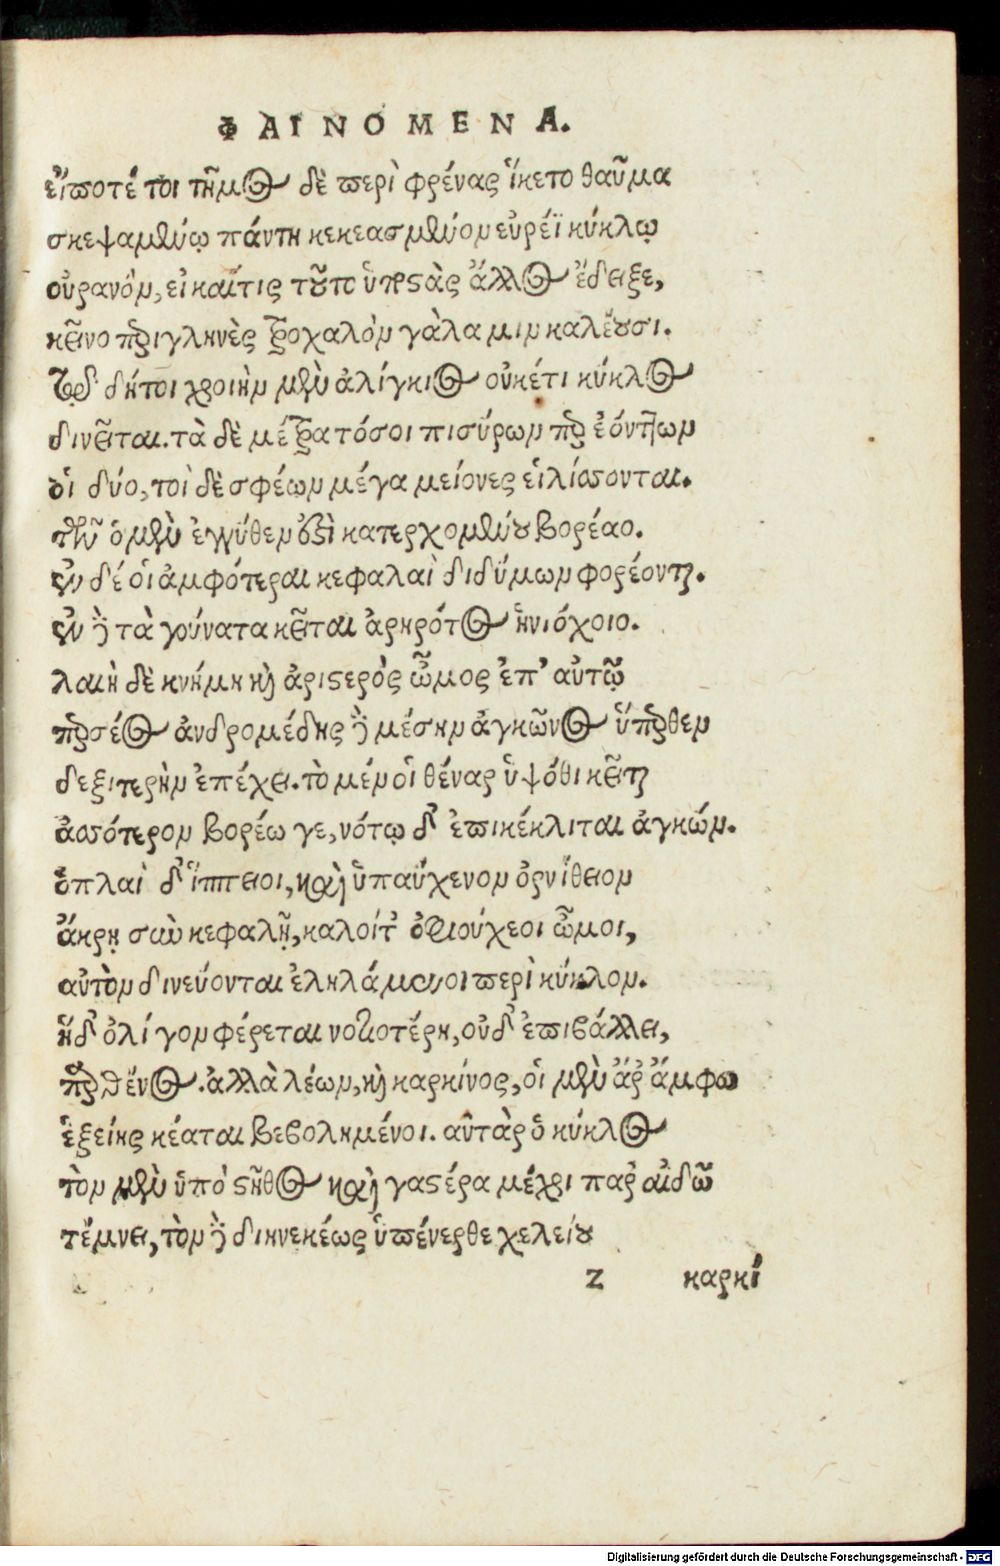 ΦΑΙΝΟΜΕΝΑ.
εἴποτέ τοι τῆμος δὲ περὶ φρένας ἵκετο θαῦμα
σκεψαμένῳ πάντη κεκεασμένον εὐρέϊ κύκλῳ
οὐρανὸν, εἰ καίτις τοῦτο ὑπρστὰς ἄλλος ἔδειξε,
κεῖνο περιγληνὲς τροχαλὸν γάλα μιν καλέουσι.
τῷ δ᾽ δήτοι χροιὴν μὲν ἀλίγκιος οὐκέτι κύκλος
δινεῖται. τὰ δὲ μέτρα τόσοι πισύρων περ ἐόντων
οἱ δύο, τοὶ δὲ σφέων μέγα μείονες εἱλίσσονται.
τῶν ὁ μὲν ἐγγύθεν ἐστὶ κατερχομένου βορέαο.
ἐν δέ οἱ ἀμφότεραι κεφαλαὶ διδύμων φορέονται.
ἐν δὲ τὰ γούνατα κεῖται ἀρηρότος ἡνιόχοιο.
λαιὴ δὲ κνήμη καὶ ἀριστερὸς ὦμος ἐπ᾽ αὐτῷ
περσέος ἀνδρομέδης δὲ μέσην ἀγκῶνος ὕπερθεν
δεξιτερὴν ἐπέχει. τὸ μέν οἱ θέναρ ὑψόθι κεῖται
ἀσσότερον βορέω γε, νότῳ δ᾽ ἐπικέκλιται ἀγκών.
ὁπλαὶ δ᾽ ἵππειοι, καὶ ὑπαύχενον ὀρνίθειον
ἄκρῃ σὺν κεφαλῇ, καλοίτ᾽ ὀφιούχεοι ὦμοι,
αὐτὸν δινεύονται ἐληλάμενοι περὶ κύκλον.
ἡ δ᾽ ὀλίγον φέρεται νοτιοτέρη, οὐδ᾽ ἐπιβάλλει,
παρθένος. ἀλλὰ λέων, καὶ καρκίνος, οἱ μὲν ἄρ᾽ ἄμφω
ἑξείης κέαται βεβολημένοι. αὐτὰρ ὁ κύκλος
τὸν μὲν ὑπὸ στῆθος καὶ γαστέρα μέχρι παρ᾽ αἰδῶ
τέμνει, τὸν δὲ διηνεκέως ὑπένερθε χελείου
z καρκί
Digitalisierung gefördert durch die Deutsche Forschungsgemeinschaft - DFG